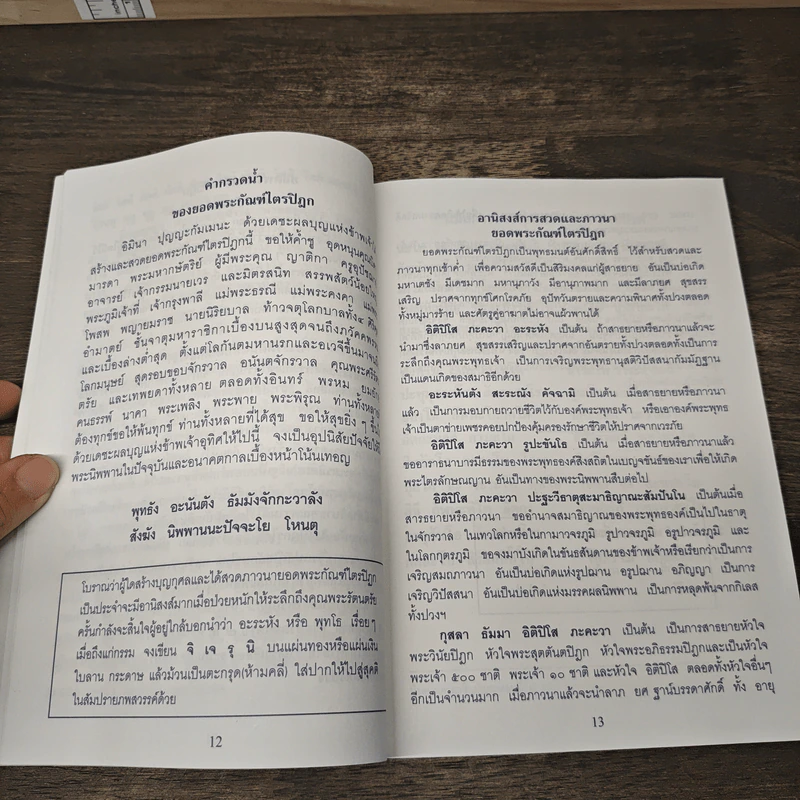 คำกรวดน้ำ
ของยอดพระกัณฑ์ไตรปิฎก
อิมินา ปุญญะกัมเมนะ ด้วยเดชะผลบุญแห่งข้าพเจ้าได้
สร้างและสวดยอดพระกัณฑ์ไตรปิฎกนี้ ขอให้ค้ำชู อุดหนุนคุณบิดา
มารดา พระมหากษัตริย์ ผู้มีพระคุณ ญาติกา ครูอุปัชฌาย์
อาจารย์ เจ้ากรรมนายเวร และมิตรสนิท สรรพสัตว์น้อยใหญ่
พระภูมิเจ้าที่ เจ้ากรุงพาลี แม่พระธรณี แม่พระคงคา แม่พระ
โพสพ พญายมราช นายนิริยบาล ท้าวจตุโลกบาลทั้ง๔ ศิริพุทธ
อำมาตย์ ชั้นจาตุมหาราชิกาเบื้องบนสูงสุดจนถึงภวัคคพรหม
และเบื้องล่างต่ำสุด ตั้งแต่โลกันตมหานรกและอเวจีขึ้นมาจนถึง
โลกมนุษย์ สุดรอบขอบจักรวาล อนันตจักรวาล คุณพระศรีรัตน
ตรัย และเทพยดาทั้งหลาย ตลอดทั้งอินทร์ พรหม ยมยักษ์
คนธรรพ์ นาคา พระเพลิง พระพาย พระพิรุณ ท่านทั้งหลายที่
ต้องทุกข์ขอให้พ้นทุกข์ ท่านทั้งหลายที่ได้สุข ขอให้สุขยิ่งๆ ขึ้นไป
ด้วยเดชะผลบุญแห่งข้าพเจ้าอุทิศให้ไปนี้ จงเป็นอุปนิสัยปัจจัยให้ถึง
พระนิพพานในปัจจุบันและอนาคตกาลเบื้องหน้าโน้นเทอญ
พุทธัง อะนันตัง ธัมมังจักกะวาลัง
สังฆัง นิพพานนะปัจจะโย โหนตุ
โบราณว่าผู้ใดสร้างบุญกุศลและได้สวดภาวนายอดพระกัณฑ์ไตรปิฎก
เป็นประจำจะมีอานิสงส์มากเมื่อป่วยหนักให้ระลึกถึงคุณพระรัตนตรัย
ครั้นกำลังจะสิ้นใจผู้อยู่ใกล้บอกนำว่า อะระหัง หรือ พุทโธ เรื่อยๆ
เมื่อถึงแก่กรรม จงเขียน จิ เจ รุ นิ บนแผ่นทองหรือแผ่นเงิน
ใบลาน กระดาษ แล้วม้วนเป็นตะกรุด(ห้ามคลี่) ใส่ปากให้ไปสู่สุคติ
ในสัมปรายภพสวรรค์ด้วย
12
อานิสงส์การสวดและภาวนา
ยอดพระกัณฑ์ไตรปิฎก
ยอดพระกัณฑ์ไตรปิฎกเป็นพุทธมนต์อันศักดิ์สิทธิ์ ไว้สำหรับสวดและ
ภาวนาทุกเช้าค่ำ เพื่อความสวัสดีเป็นสิริมงคลแก่ผู้สาธยาย อันเป็นบ่อเกิด
มหาเตชัง มีเดชมาก มหานุภาวัง มีอานุภาพมาก และมีลาภยศ สุขสรร
เสริญ ปราศจากทุกข์โศกโรคภัย อุปัทวันตรายและความพินาศทั้งปวงตลอด
ทั้งหมู่มารร้าย และศัตรูคู่อาฆาตไม่อาจแผ้วพานได้
อิติปิโส ภะคะวา อะระหัง เป็นต้น ถ้าสาธยายหรือภาวนาแล้วจะ
นำมาซึ่งลาภยศ สุขสรรเสริญและปราศจากอันตรายทั้งปวงตลอดทั้งเป็นการ
ระลึกถึงคุณพระพุทธเจ้า เป็นการเจริญพระพุทธานุสติวิปัสสนากัมมัฏฐาน
เป็นแดนเกิดของสมาธิอีกด้วย
อะระหันตัง สะระณัง คัจฉามิ เป็นต้น เมื่อสาธยายหรือภาวนา
แล้ว เป็นการมอบกายถวายชีวิตไว้กับองค์พระพุทธเจ้า หรือเอาองค์พระพุทธ
เจ้าเป็นตาข่ายเพชรคอยปกป้องคุ้มครองรักษาชีวิตให้ปราศจากเวรภัย
อิติปิโส ภะคะวา รูปะขันโธ เป็นต้น เมื่อสาธยายหรือภาวนาแล้ว
ขออาราธนาบารมีธรรมของพระพุทธองค์สิงสถิตในเบญจขันธ์ของเราเพื่อให้เกิด
พระไตรลักษณญาน อันเป็นทางของพระนิพพานสืบต่อไป
อิติปิโส ภะคะวา ปะฐะวีธาตุสะมาธิญาณะสัมปันโน เป็นต้นเมื่อ
สาธยายหรือภาวนา ขออำนาจสมาธิญาณของพระพุทธองค์เป็นไปในธาตุ
ในจักรวาล ในเทวโลกหรือในกามาวจรภูมิ รูปาวจรภูมิ อรูปาวจรภูมิ และ
ในโลกุตรภูมิ ขอจงมาบังเกิดในขันธสันดานของข้าพเจ้าหรือเรียกว่าเป็นการ
เจริญสมถภาวนา อันเป็นบ่อเกิดแห่งรูปฌาน อรูปฌาน อภิญญา เป็นการ
เจริญวิปัสสนา อันเป็นบ่อเกิดแห่งมรรคผลนิพพาน เป็นการหลุดพ้นจากกิเลส
ทั้งปวงฯ
กุสลา ธัมมา อิติปิโส ภะคะวา เป็นต้น เป็นการสาธยายหัวใจ
พระวินัยปิฎก หัวใจพระสุตตันตปิฎก หัวใจพระอภิธรรมปิฎกและเป็นหัวใจ
พระเจ้า ๕๐๐ ชาติ พระเจ้า ๑๐ ชาติ และหัวใจ อิติปิโส ตลอดทั้งหัวใจอื่นๆ
อีกเป็นจำนวนมาก เมื่อภาวนาแล้วจะนำลาภ ยศ ฐานันดรศักดิ์ ทั้ง อายุ
13